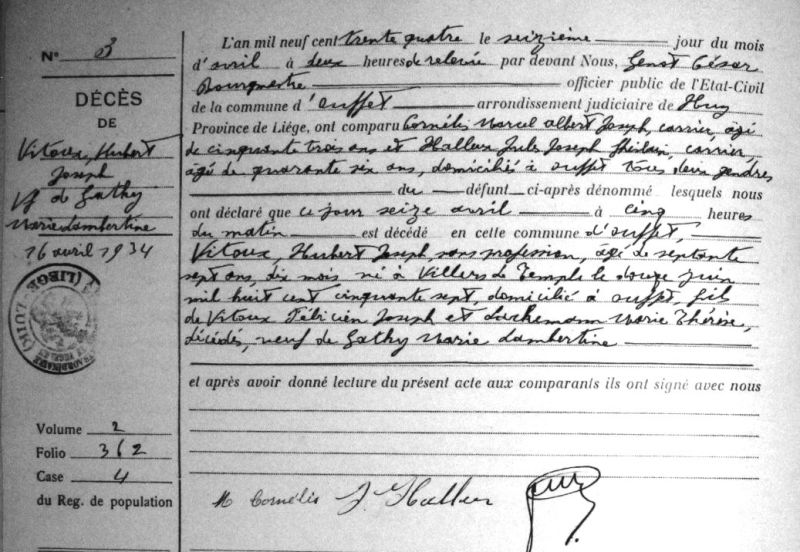 N° 3
DÉCÈS
DE
Vitoux, Hubert
Joseph
Vf de Gathy
Marie Lambertine
16 avril 1934
(LIEGE)
Volume 2
Folio 362
Case 4
du Reg. de population
L'an mil neuf cent trente quatre le seizième jour du mois
d'avril à deux heures de relevée par devant Nous, Genot César
Bourgmestre officier public de l'Etat-Civil
de la commune d'Ouffet arrondissement judiciaire de Huy
Province de Liége, ont comparu Cornélis Marcel Albert Joseph, carrier, âgé
de cinquante trois ans et Halleux Jules Joseph Ghislain, carrier,
âgé de quarante six ans, domiciliés à Ouffet tous deux gendres
du défunt ci-après dénommé lesquels nous
ont déclaré que ce jour seize avril à cinq heures
du matin est décédé en cette commune d'Ouffet,
Vitoux, Hubert Joseph, sans profession, âgé de septante
sept ans, dix mois né à Villers le Temple le douze juin
mil huit cent cinquante sept, domicilié à Ouffet, fils
de Vitoux Félicien Joseph et Marie Thérèse,
décédés, veuf de Gathy Marie Lambertine
et après avoir donné lecture du présent acte aux comparants ils ont signé avec nous
M Cornélis J. Halleux